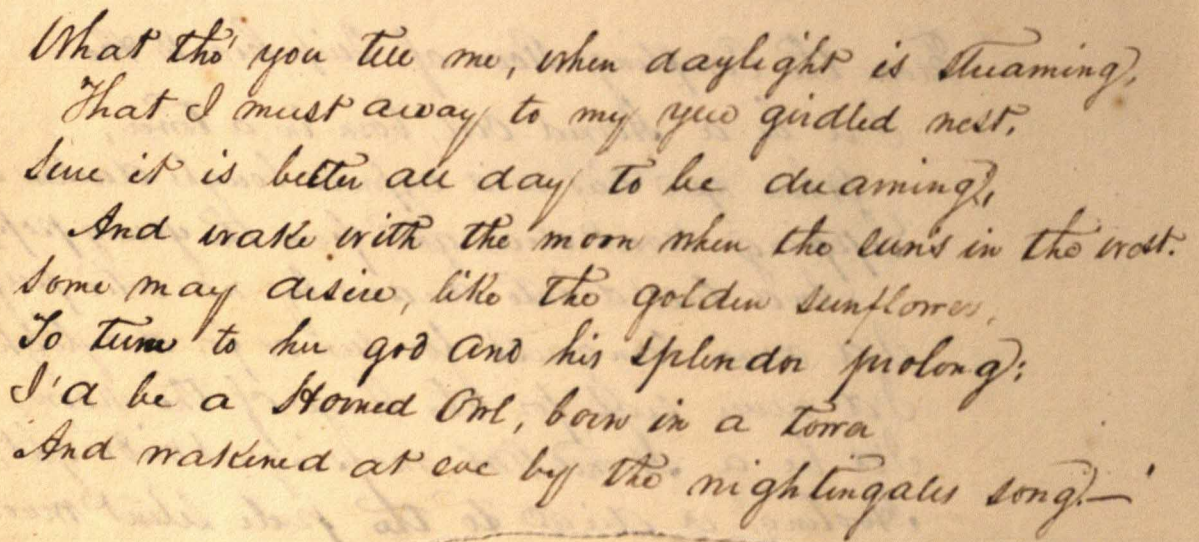 What tho' you tell me, when daylight is streaming,
That I must away to my yew girdled nest.
Sure it is better all day to be dreaming,
And wake with the moon when the suns in the west.
Some may desire, like the golden sunflower,
To turn to her god and his splendor prolong:
I'd be a Horned Owl, born in a tower
And wakened at eve by the nightingales song.—'